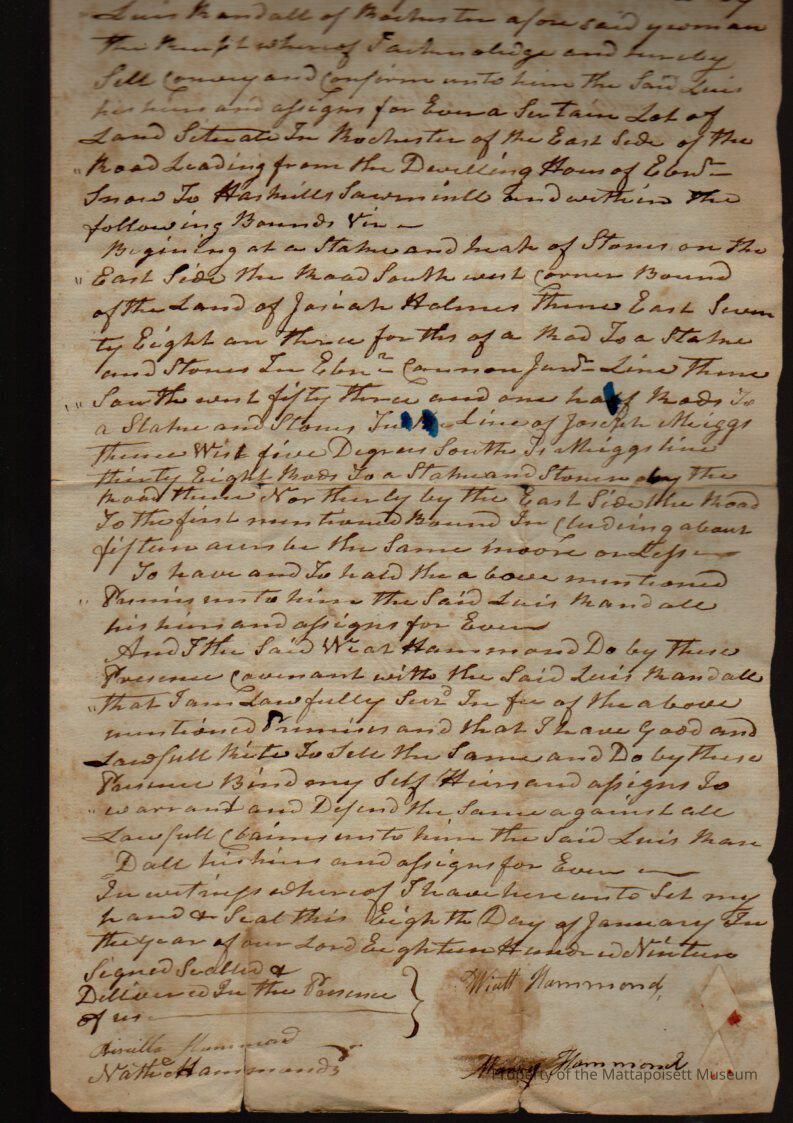 Luis Randall of Rochester afore said yeoman
the Resept whereof I acknoledge and hereby
Sell Convey and Confirm unto him the Said Luis
his heirs and assigns for Ever a Sertain Lot of
Land Setuate In Rochester of the East Side of the
Road Leading from the Dwelling Hous of Ebnr
Snow To Haskills Sawmill and within the
following Bounds Viz
Begining at a Stake and heak of Stones on the
East Side the Road South west Corner Bound
of the Land of Josiah Holmes thence East Seven
ty Eight an three forths of a Rod To a Stake
and Stones In Ebnr Line thence
South west fifty three and one half Rods To
a Stake and Stones In Line of Joseph Meiggs
thence West five Degrees South Is Meiggs line
thirty Eight Rods To a Stake and Stones by the
Road thence Northerly by the East Side the Road
To the first mentioned Bound In Cluding about
fifteen acers be the Same moore or Less
To have and To hald the a bove mentioned
Premises unto him the Said Luis Randall
his heirs and assigns for Ever
And I the Said Wiat Hammond Do by these
Presence Covenant with the Said Luis Randall
that I am Lawfully In fee of the above
mentioned Premises and that I have Good and
Lawfull Rite To Sell the Same and Do by these
Presence Bind my Self Heirs and assigns To
warrant and Defend the Same against all
Lawfull Claimes unto him the Said Luis Ran
Dall his heirs and assigns for Ever
In witings whereof I have here unto Set my
hand & Seal this Eighth Day of January In
the year of our Lord Eighteen Hundred Ninteen
Signed Sealled &
Delivered In the Presence
of us
Wiatt Hammond
Prisilla Hammond
Nath Hammond
Mercy Hammond
Property of the Mattapoisett Museum